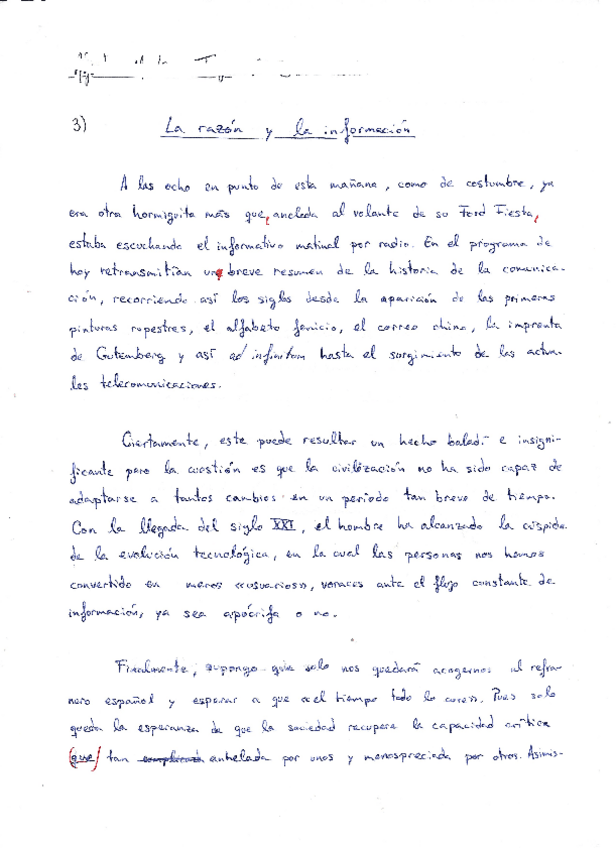 3)
La razón y la información
A las ocho en punto de esta mañana, como de costumbre, ya
era otra hormiguita más que, anclada al volante de su Ford Fiesta,
estaba escuchando el informativo matinal por radio. En el programa de
hoy retransmitían un breve resumen de la historia de la comunica-
ción, recorriendo así los siglos desde la aparición de las primeras
pinturas rupestres, el alfabeto fenicio, el correo chino, la imprenta
de Gutemberg y así ad infinitum hasta el surgimiento de las actua-
les telecomunicaciones.
Ciertamente, este puede resultar un hecho baladí e insigni-
ficante pero la cuestión es que la civilización no ha sido capaz de
adaptarse a tantos cambios en un periodo tan breve de tiempo.
Con la llegada del siglo XXI, el hombre ha alcanzado la cúspide
de la evolución tecnológica, en la cual las personas nos hemos
convertido en meros «usuarios», voraces ante el flujo constante de
información, ya sea apócrifa o no.
Finalmente, supongo que solo nos quedará acogernos al refra-
nero español y esperar a que «el tiempo todo lo cure». Pues solo
queda la esperanza de que la sociedad recupere la capacidad crítica
(que) tan anhelada por unos y menospreciada por otros. Asimis-